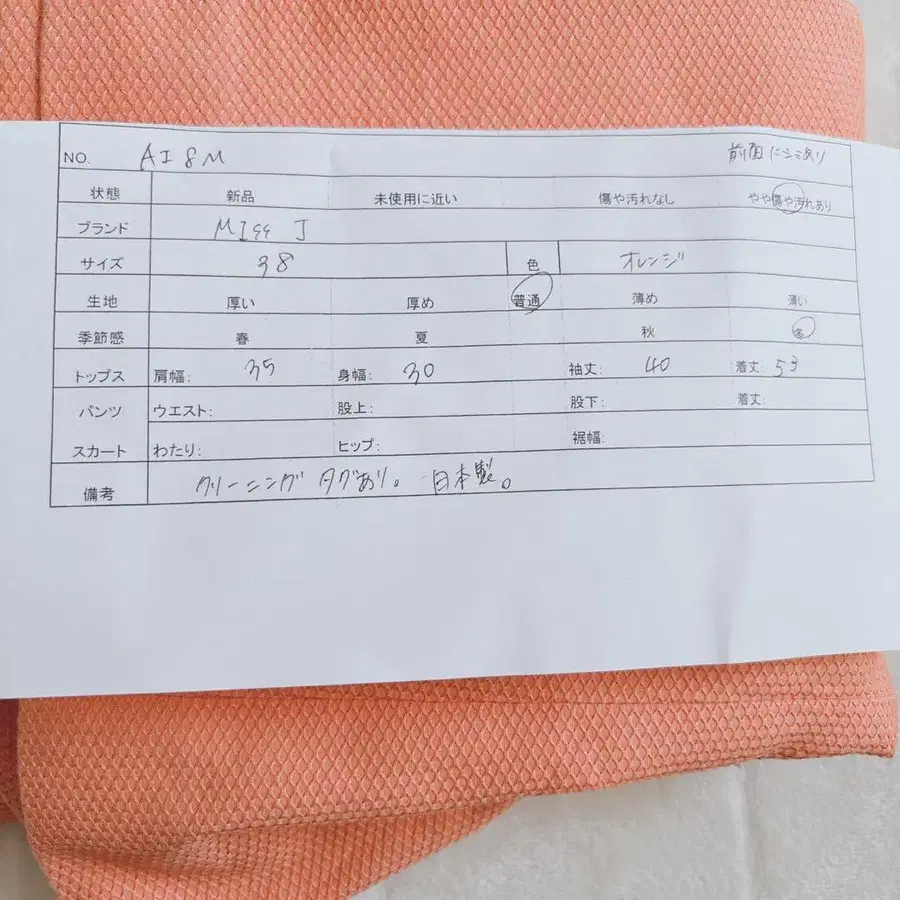 NO. AI8M 前面にシミあり
状態 新品 未使用に近い 傷や汚れなし やや傷や汚れあり
ブランド MISS J
サイズ 38 色 オレンジ
生地 厚い 厚め 普通 薄め 薄い
季節感 春 夏 秋 冬
トップス 肩幅: 35 身幅: 30 袖丈: 40 着丈: 53
パンツ ウエスト: 股上: 股下: 着丈:
スカート わたり: ヒップ: 裾幅:
備考 クリーニングタグあり。日本製。